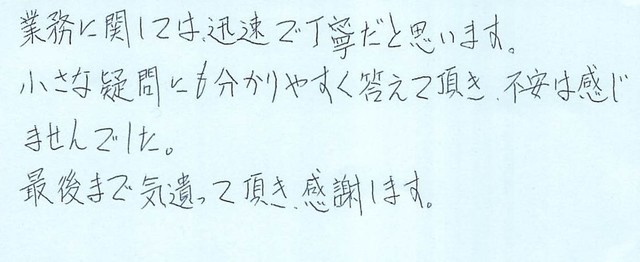 業務に関しては、迅速で丁寧だと思います。
小さな疑問にも分かりやすく答えて頂き、不安は感じ
ませんでした。
最後まで気遣って頂き、感謝します。